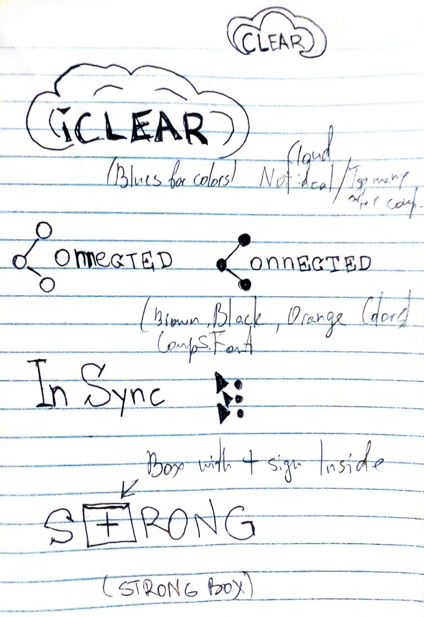 CLEAR
iCLEAR
(Blues for colors)
Cloud
Not ideal / Too many
other comp.
onnECTED
onnECTED
(Brown, Black, Orange Colors)
Comps. Font
In Sync
Box with + sign Inside
S+RONG
(STRONG BOX)